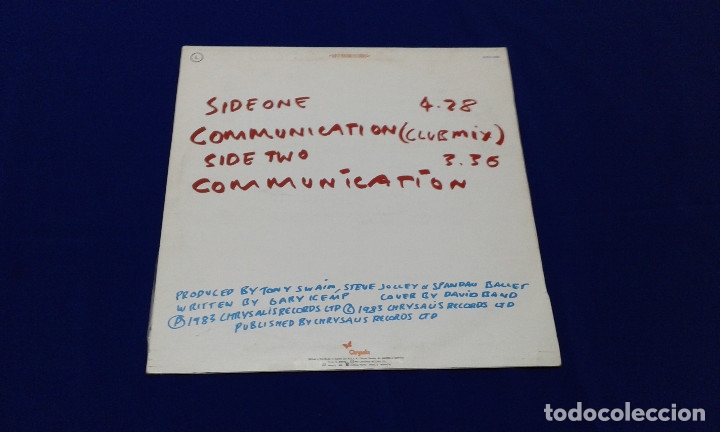 SIDE ONE 4.28
COMMUNICATION (CLUB MIX)
SIDE TWO 3.36
COMMUNICATION
PRODUCED BY TONY SWAIN, STEVE JOLLEY & SPANDAU BALLET
WRITTEN BY GARY KEMP COVER BY DAVID BAND
Ⓟ 1983 CHRYSALIS RECORDS LTD © 1983 CHRYSALIS RECORDS LTD
PUBLISHED BY CHRYSALIS RECORDS LTD
Chrysalis
todocoleccion
todocoleccion.net